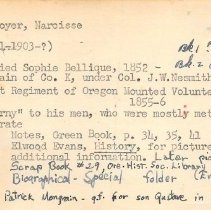 oyer, Narcisse
-1903-?)
Bk. 1
ded Sophia Bellique, 1852 - Bk. 2
ain of Co. K, under Col. J.W.Nesmith
t Regiment of Oregon Mounted Volunt
1855-6
rny" to his men, who were mostly met
rats
Notes, Green Book, p. 34, 35, 41
Elwood Evans, History, for pictur
additional information. Later pic
Scrap Book #29, Ore. Hist. Soc. Library
Biographical - Special folder
Patrick Mongrain - g.f. for son Gustave in